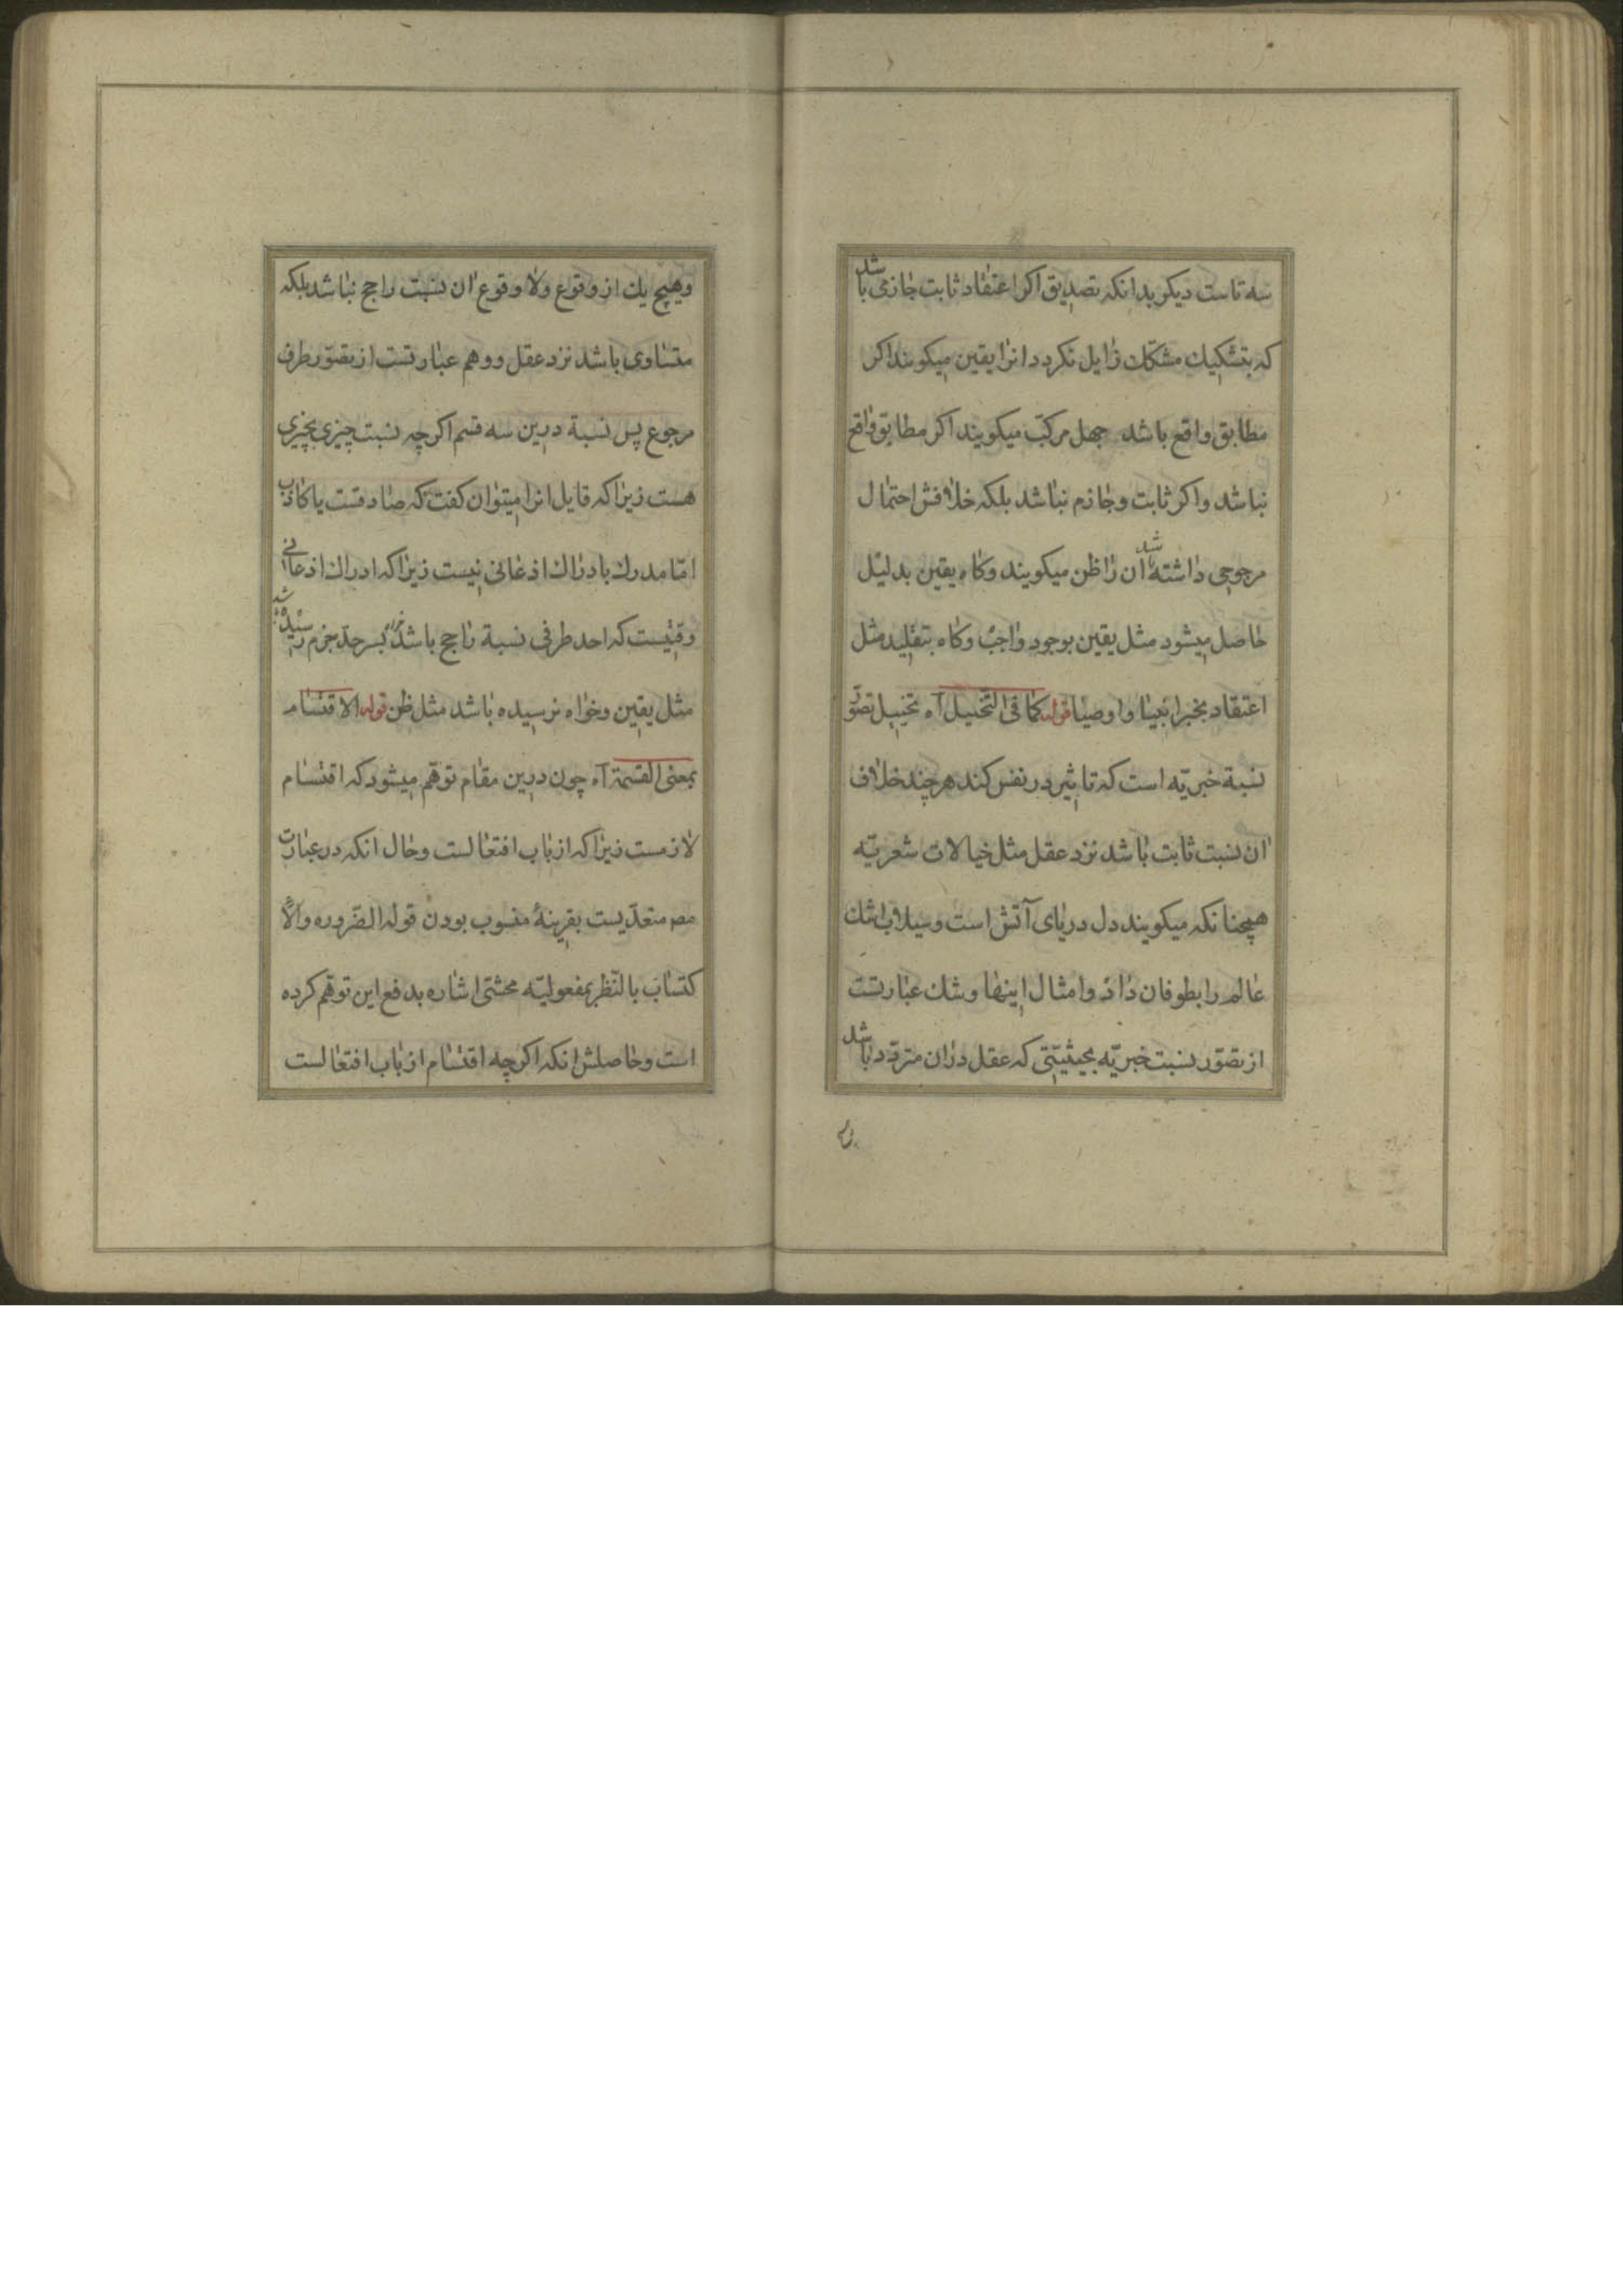 سه تاست دیکر بدانکه تصدیق اکر اعتقاد ثابت جازمی باشد
که بتشکیك مشکك زایل نکردد انرا یقین میکویند اکر
مطابق واقع باشد جهل مرکب میکویند اکر مطابق واقع
نباشد واکر ثابت وجازم نباشد بلکه خلافش احتمال
مرجوحی داشته باشد ان را ظن میکویند وکاه یقین بدلیل
حاصل میشود مثل یقین بوجود واجب وکاه بتقلید مثل
اعتقاد بخبر انبیا واوصیا قوله کما فی التخییل آه تخییل تصوّر
نسبة خبریّه است که تاثیر در نفس کند هر چند خلاف
ان نسبت ثابت باشد نزد عقل مثل خیالات شعریّه
همچنانکه میکویند دل دریای آتش است وسیلاب اشك
عالم را بطوفان داد وامثال اینها وشك عبارتست
از تصوّر نسبت خبریّه بحیثیّتی که عقل دران متردّد باشد
وهیچ یك از وقوع ولا وقوع ان نسبت راجح نباشد بلکه
متساوی باشد نزد عقل ووهم عبارتست از تصوّر طرف
مرجوع پس نسبة درین سه قسم اکرچه نسبت چیزی بچیزی
هست زیرا که قایل انرا میتوان کفت که صادقست یا کاذب
امّا مدرك بادراك اذعانی نیست زیرا که ادراك اذعانی
وقتیست که احد طرفی نسبة راجح باشد خواه بسر حدّ جزم رسیده باشد
مثل یقین وخواه نرسیده باشد مثل ظن قوله الاقتسام
بمعنی القسمة آه چون درین مقام توهّم میشود که اقتسام
لازمست زیرا که از باب افتعالست وحال انکه در عبارت
مص متعدّیست بقرینهٔ منسوب بودن قوله الضّروره والا
کتساب بالنّظر بمفعولیّه محشّی اشاره بدفع این توهّم کرده
است وحاصلش انکه اکرچه اقتسام از باب افتعالست